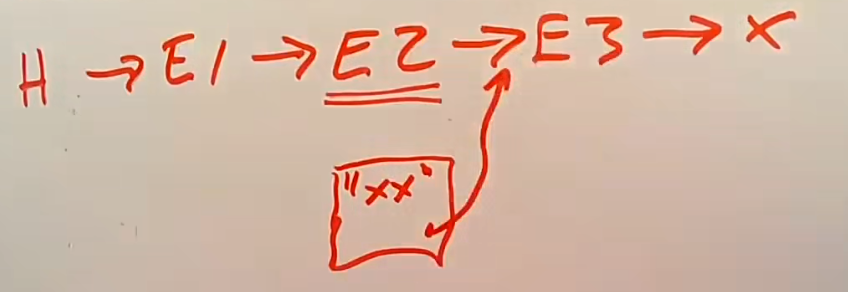 H → E1 → E2 → E3 → X
"xx"